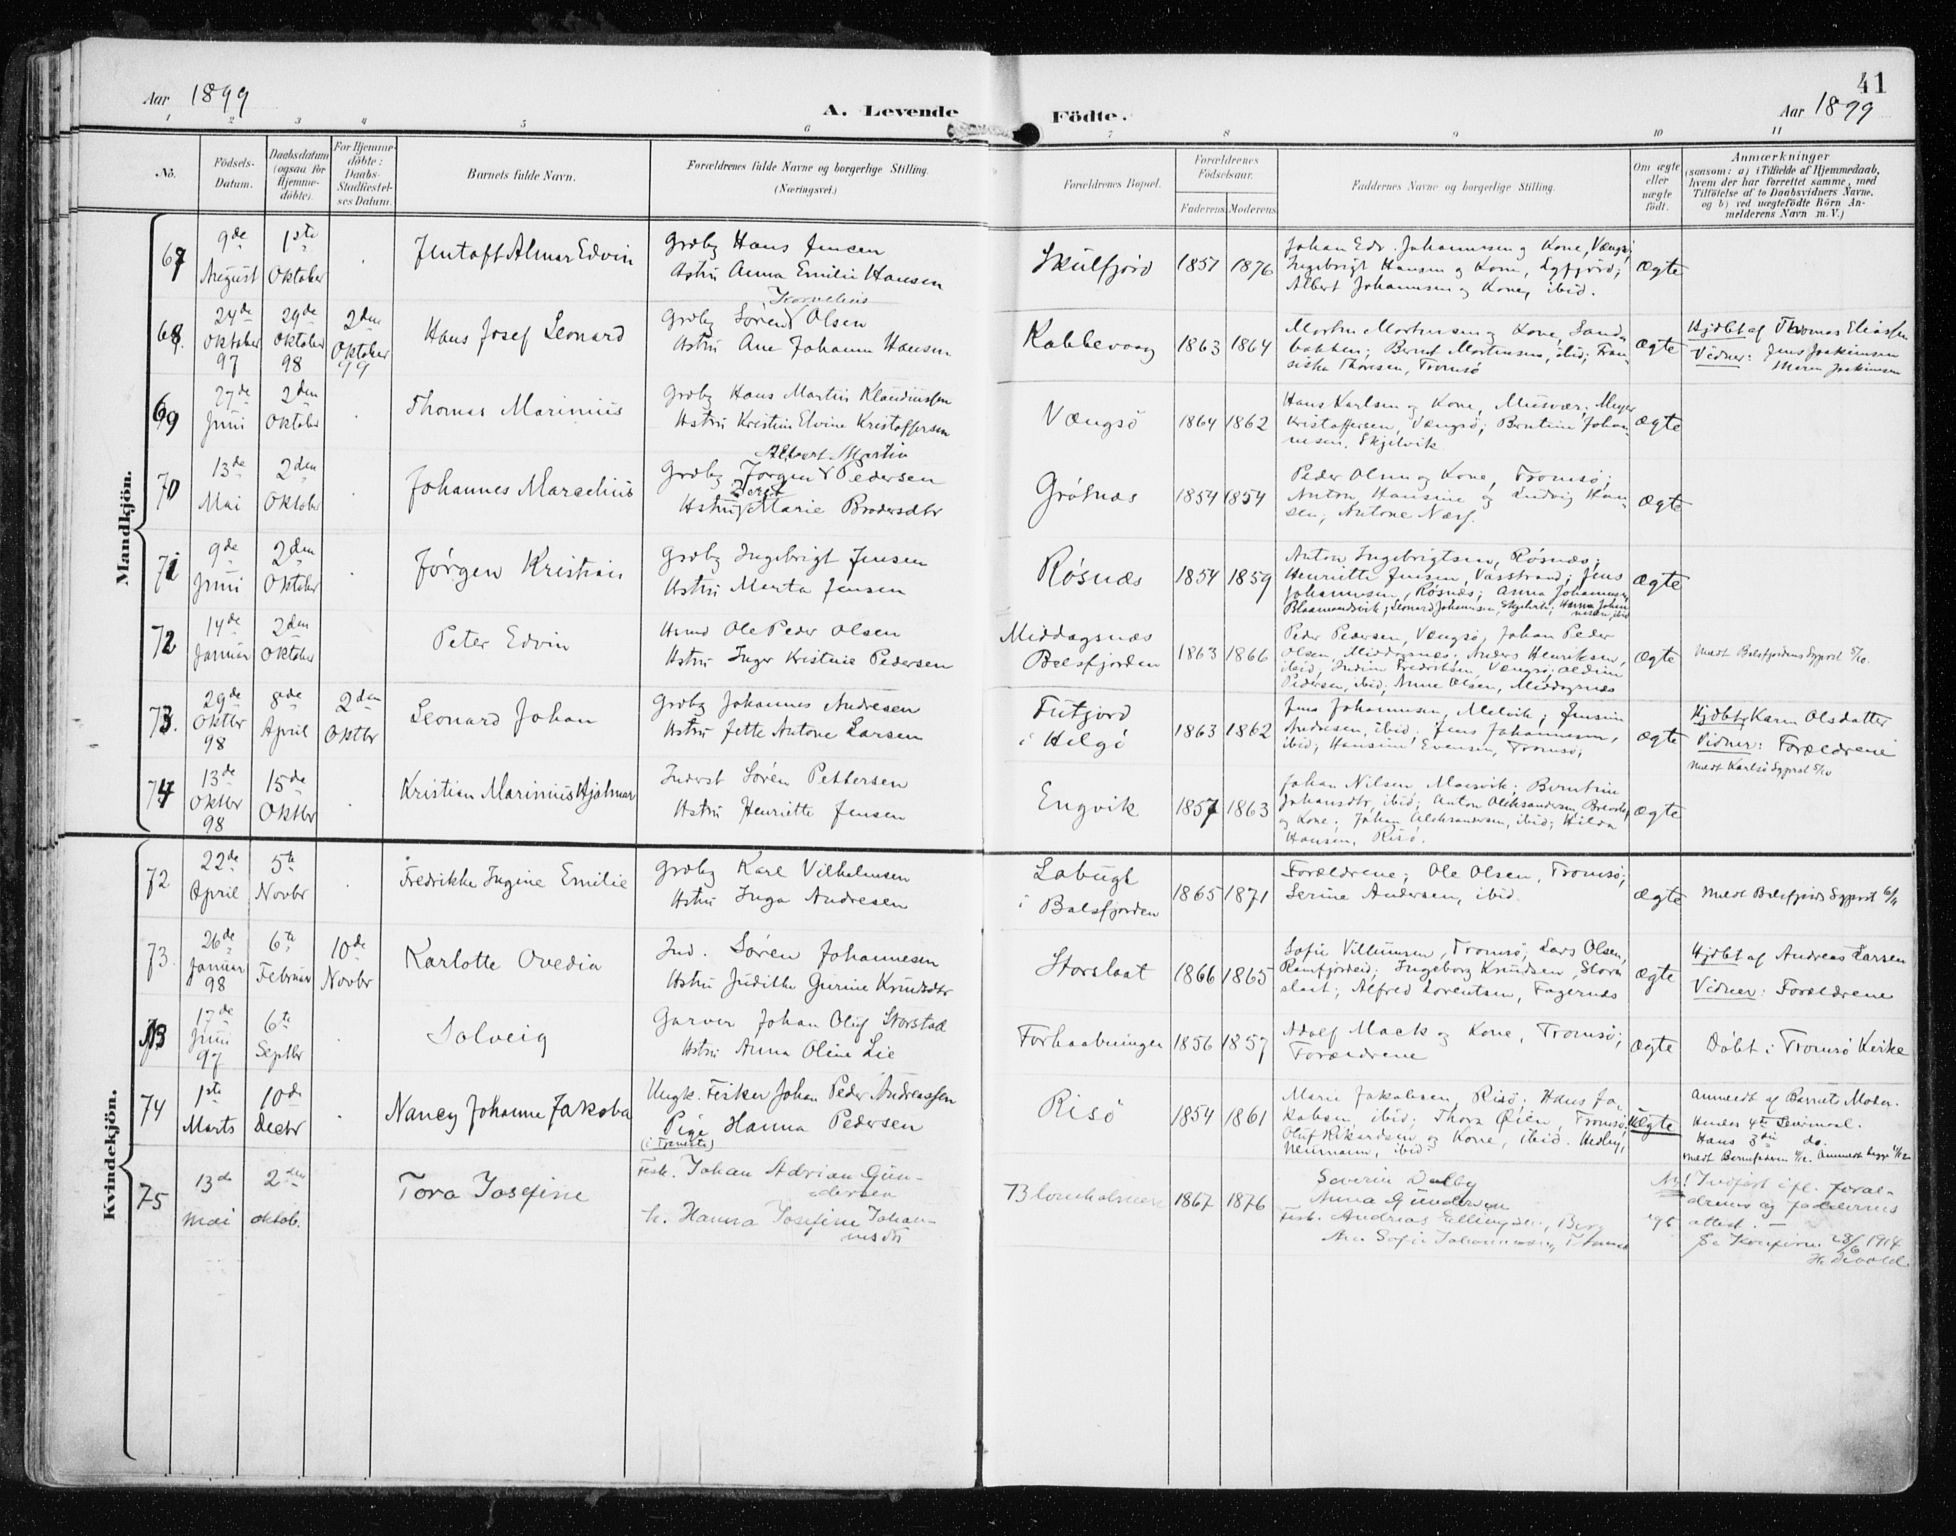 41
Aar 1899
A. Levende Födte.
Aar 1899
1 2 3 4 5 6 7 8 9 10 11
No.
Födsels-Datum.
Daabsdatum (ogsaa for Hjemme-döbte).
For Hjemme-döbte: Daabs-Stadfæstel-ses Datum.
Barnets fulde Navn.
Forældrenes fulde Navne og borgerlige Stilling.
(Næringsvei.)
Forældrenes Bopæl.
Forældrenes Födselsaar.
Faderens. Moderens.
Faddernes Navne og borgerlige Stilling.
Om ægte eller uægte födt.
Anmærkninger
(saasom: a) i Tilfælde af Hjemmedaab,
hvem der har forrettet samme, med
Tilföielse af to Daabsvidners Navne,
og b) ved uægtefödte Börn An-
melderens Navn m. V.)
Mandkjön.
67 9de August 1ste Oktober Jentoft Almar Edvin
Grdbr Hans Jensen
Hstru Anna Emilie Hansen
Skulfjord 1851 1876
Johan Edv. Johannesen og Kone, Vængsö;
Ingebrigt Hansen og Kone,
Albert Johannsen og Kone, ibid.
Ægte
68. 24de Oktober 97 29de Oktober 98 2den Oktober 99 Hans Josef Leonard
Kornelius
Grdbr Sören Olsen
Hstru Ane Johanna Hansen
Kobbevaag 1863 1864
Morten Mortensen og Kone, Sand-
bakken; Bernt Mortensen, ibid; Fran-
siska Thoresen, Tromsö
Ægte
Hjdbt af Thomas Eliassen
Vidner: Jens Joakimsen
Maren Joakimsen
69 27de Juni 2den Oktober Thomas Marinius
Grdbr Hans Martin Klaudiussen
Hstru Kristine Elvine Kristoffersen
Vængsö 1864 1862
Hans Karlsen og Kone, Musvær; Meyer
Kristoffersen, Vængsö; Berntine Johan-
nesen, Skjelvik
Ægte
70 13de Mai 2den Oktober Johannes Marselius
Albert Martin
Grdbr Jörgen Pedersen
Berit
Hstru Marie Brodersdtr
Grötnæs 1854 1854
Peder Olsen og Kone, Tromsö;
Anton, Hansine og Ludvig Han-
sen, Antone Næss.
Ægte
71 9de Juni 2den Oktober Jörgen Kristian
Grdbr Ingebrigt Jensen
Hstru Marta Jensen
Rösnæs 1854 1859
Anton Ingebrigtsen, Rösnæs;
Henriette Jensen, Vasstrand; Jens
Johannesen, Rösnæs; Anna Johannesen,
Blaamandsvik; Leonard Johannesen,
Ægte
72 14de Januar 2den Oktober Peter Edvin
Ole Peder Olsen
Hstru Inger Kristine Pedersen
Middagsnæs
Balsfjorden 1863 1866
Peder Pedersen, Vængsö, Johan Peder
Olsen, Middagsnæs; Anders Henriksen,
ibid; Fredriksen, Vængsö;
Pedersen, ibid; Anne Olsen, Middagsnæs
Ægte
Meldt Balsfjordens Sgprst 5/10.
73. 29de Oktbr 98 8de April 2den Oktbr Leonard Johan
Grdbr Johannes Andresen
Hstru Jette Antone Larsen
Futfjord
i Helgö 1863 1862
Jens Johannesen, Melvik; Jensine
Andresen, ibid; Jens Johannesen,
ibid; Hansine Evensen, Tromsö;
Ægte
Hjdbt Karen Olsdatter
Vidner: Forældrene
Meldt Karlsö Sgprst 5/10
74 13de Oktbr 98 15de Oktbr Kristian Marinius Hjalmar
Inderst Sören Pettersen
Hstru Henriette Jensen
Engvik 1857 1863
Johan Nilsen, Maasvik; Berntine
Johansdtr, ibid; Anton Aleksandersen
og Kone; Johan Aleksandersen, ibid; Hilda
Hansen, Risö.
Ægte
Kvindekjön.
72 22de April 5te Novbr Fredrikke Ingine Emilie
Grdbr Karl Vilhelmsen
Hstru Inga Andresen
Labugt
i Balsfjorden 1865 1871
Forældrene; Ole Olsen, Tromsö;
Serine Andersen, ibid.
Ægte
Meldt Balsfjords Sgprst 6/11
73. 26de Januar 98 6te Februar 10de Novbr Karlotte Ovedia
Ind. Sören Johannesen
Hstru Judithe Gurine Knudsdtr
Storslaat 1866 1865
Sofie Villumsen, Tromsö; Lars Olsen,
Ramfjordeid; Ingeborg Knudsen, Stors-
slaat; Alfred Lorentsen, Fagernæs
Ægte
Hjdbt af Andreas Larsen
Vidner: Forældrene
73 17de Juni 97 6te Septbr Solveig
Garver Johan Oluf Storstad
Hstru Anna Oline Lie
Forhaabningen 1856 1857
Adolf Mack og Kone, Tromsö;
Forældrene
Ægte
Döbt i Tromsö Kirke
74 1ste Marts 10de Decbr Nancy Johanne Jakoba
Ungk. Fisker Johan Peder Andreassen
Pige Hanna Pedersen
(i Tromsö)
Risö 1854 1861
Marie Jakobsen, Risö; Hans Ja-
kobsen ibid; Thora Öien, Tromsö;
Oluf Rikardsen og Kone, ibid. Hedvig
Neumann, ibid.
Uægte
Anmeldt af Barnets Moder.
Hendes 4de Leiermaal.
Hans 3die do.
75 13de Mai 2den Oktob. Tora Josefine
Fisk. Johan Adrian Gun-
dersen
h. Hanna Josefine Johan-
nesdtr
1867 1876
Severin Dalby
Anna Gundersen
Fisk. Andreas Ellingsen, Berg
Sofie Johannessen, Tromsö
egt.
Ny! Indført ifl. foræl-
drenes og faddernes
attest. —
Se Konfirm. 28/6 1914